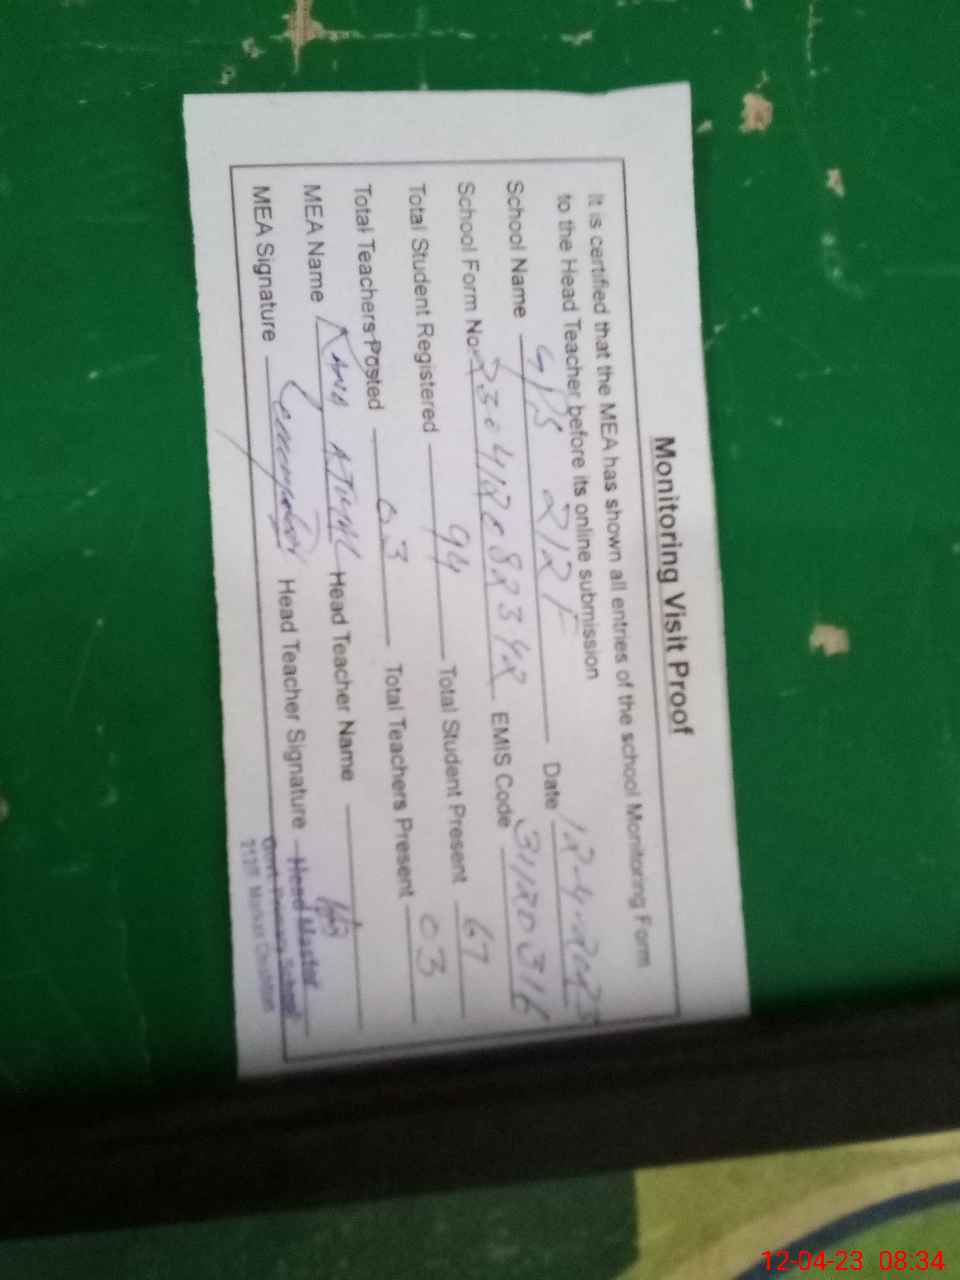 Monitoring Visit Proof
It is certified that the MEA has shown all entries of the school Monitoring Form
to the Head Teacher before its online submission
School Name GPS 212 F Date 12-4-2023
School Form No. 230412082342 EMIS Code 31120316
Total Student Registered 94 Total Student Present 67
Total Teachers Posted 03 Total Teachers Present 03
MEA Name Head Teacher Name
MEA Signature Head Teacher Signature Head Master
Govt. Primary School
12-04-23 08:34